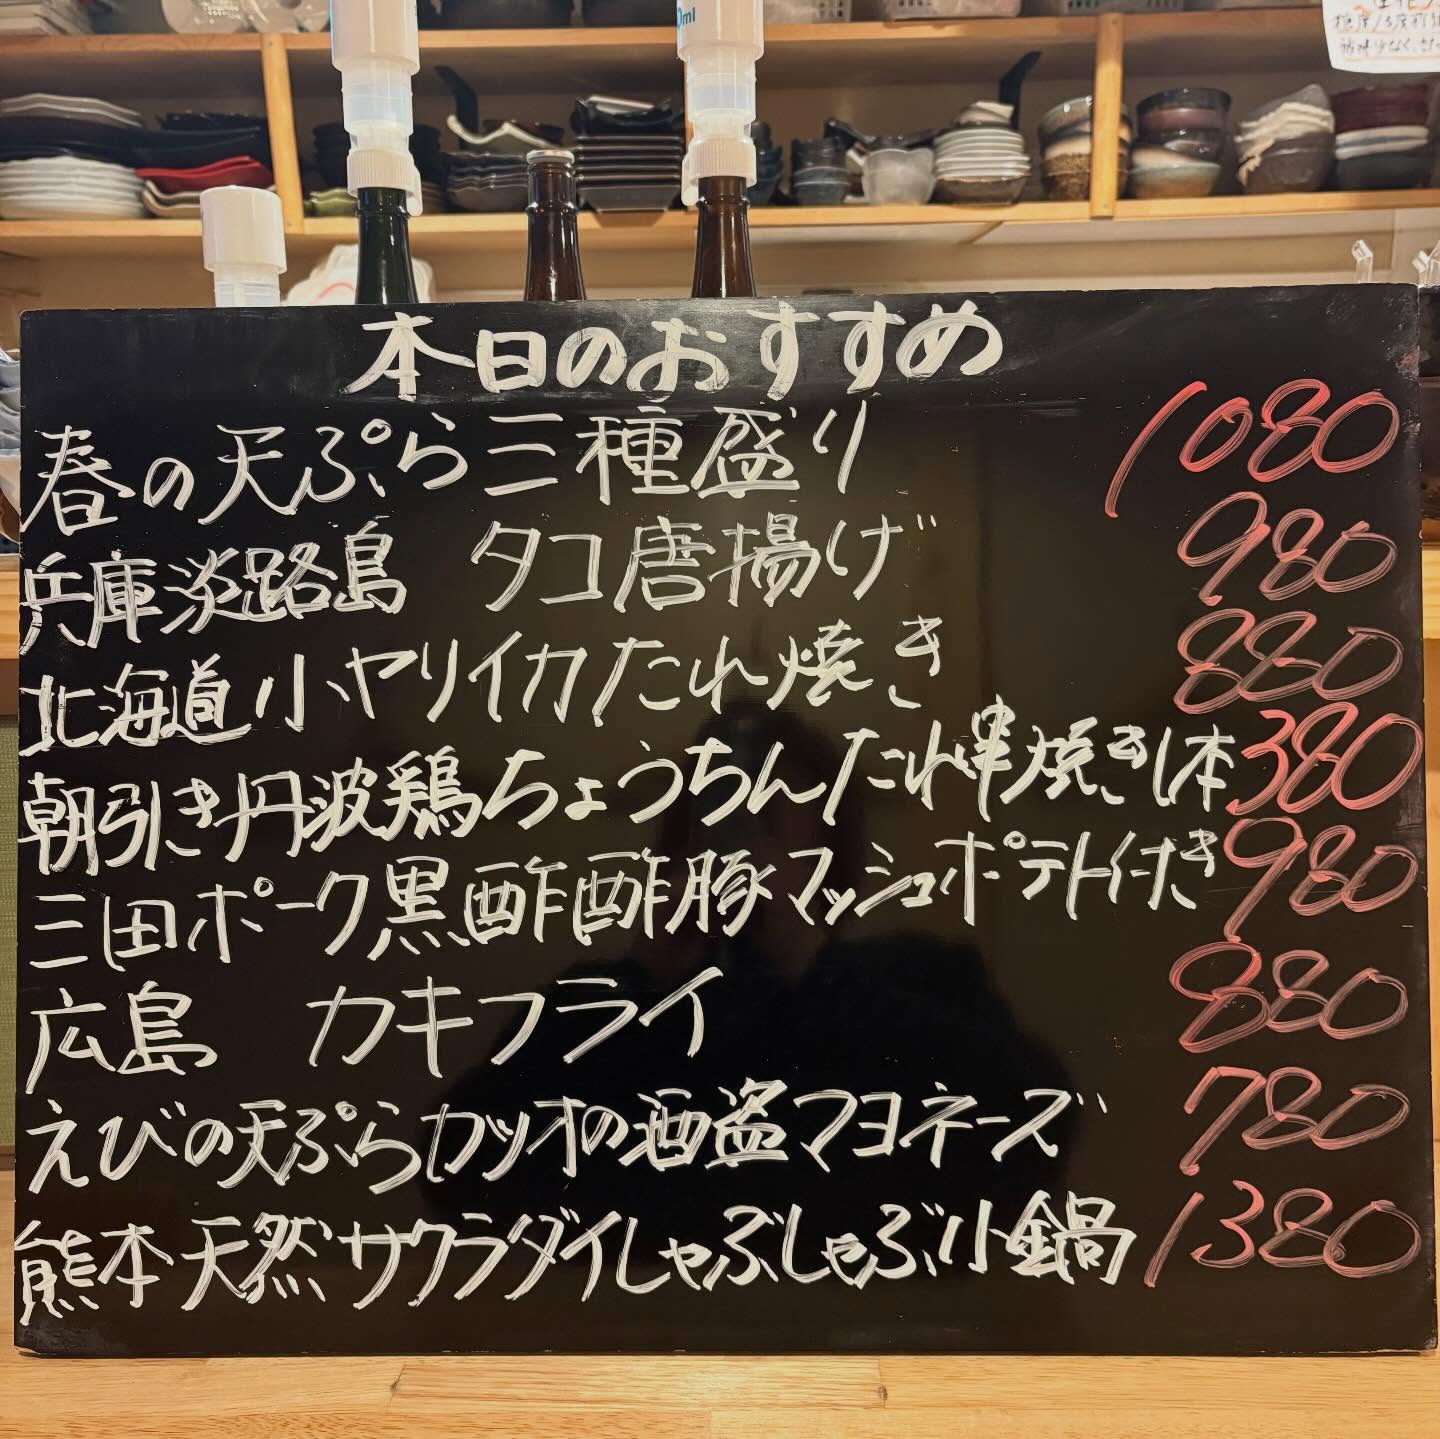 本日のおすすめ
春の天ぷら三種盛り 1080
兵庫淡路島 タコ唐揚げ 980
北海道小ヤリイカたれ焼き 880
朝引き丹波鶏ちょうちんたれ串焼き1本 380
三田ポーク黒酢酢豚マッシュポポテト付き 980
広島 カキフライ 880
えびの天ぷらカツオの酒盗マヨネーズ 780
熊本天然サクラダイしゃぶしゃぶ小鍋 1380